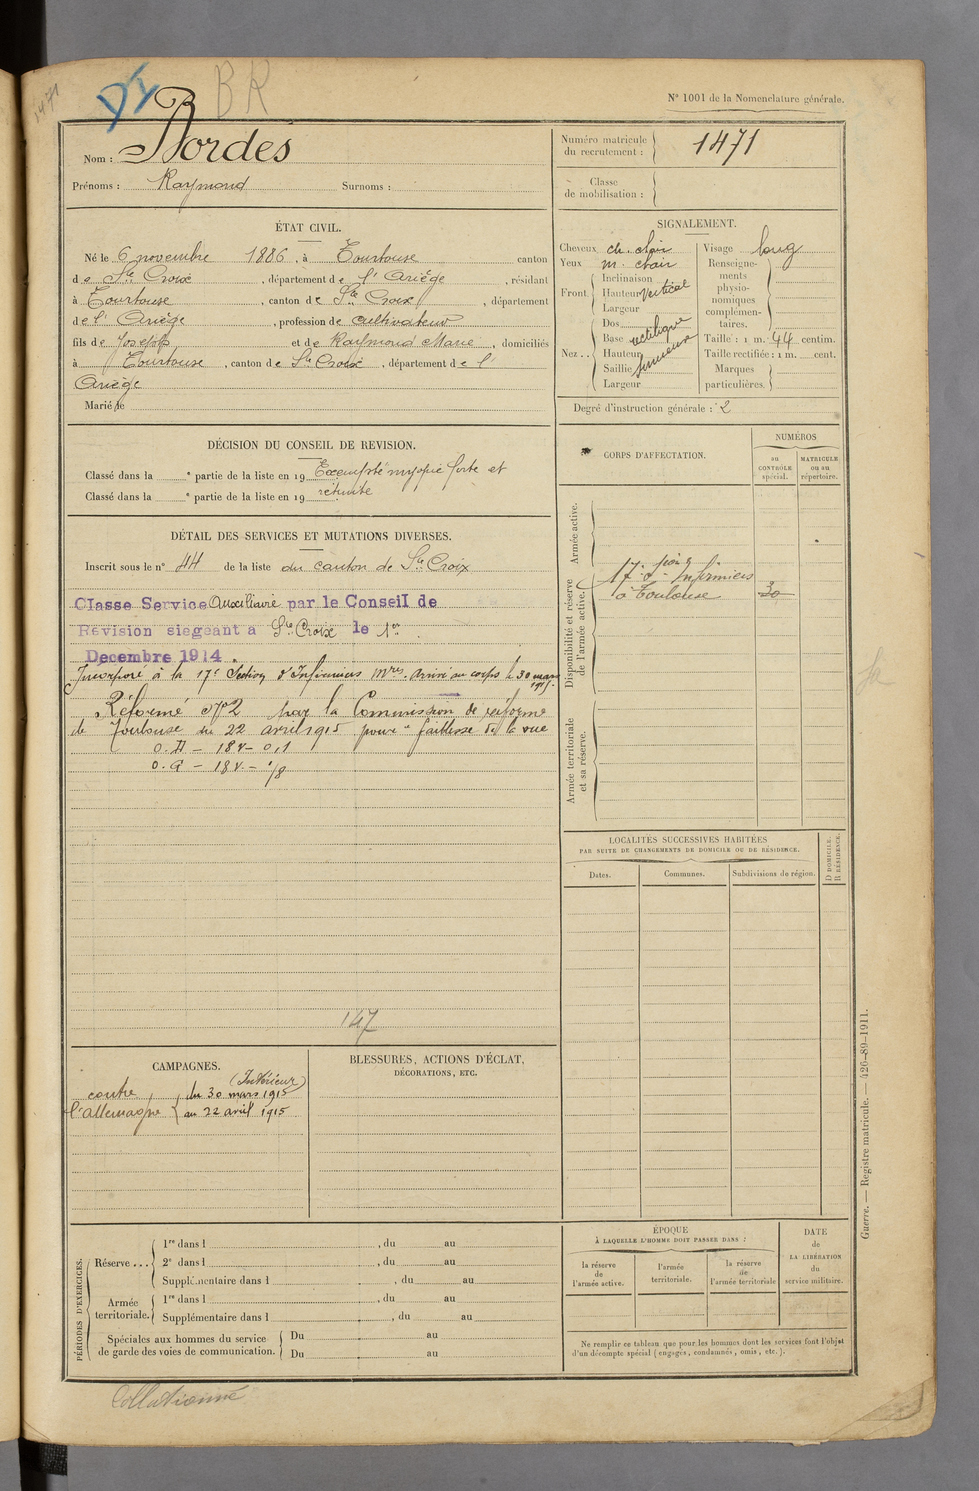 1471
DI
BR
N° 1001 de la Nomenclature générale.
Nom : Bordes
Prénoms : Raymond Surnoms :
Numéro matricule du recrutement : 1471
Classe de mobilisation :
ÉTAT CIVIL.
Né le 6 novembre 1886, à Tourtouse canton
de Ste Croix, département de l'Ariège, résidant
à Tourtouse, canton de Ste Croix, département
de l'Ariège, profession de cultivateur
fils de Joseph et de Raymond Marie, domiciliés
à Tourtouse, canton de Ste Croix, département de l'
Ariège
Marié le
SIGNALEMENT.
Cheveux ch. clair
Yeux m. clair
Front. Inclinaison
Hauteur vertical
Largeur
Nez .. Dos
Base rectiligne
Hauteur
Saillie sinueux
Largeur
Visage long
Renseignements physionomiques complémentaires.
Taille : 1 m. 44 centim.
Taille rectifiée : 1 m. cent.
Marques particulières.
Degré d'instruction générale : 2
DÉCISION DU CONSEIL DE REVISION.
Classé dans la e partie de la liste en 19 Exempté myopie forte et
Classé dans la e partie de la liste en 19 rétinite
DÉTAIL DES SERVICES ET MUTATIONS DIVERSES.
Inscrit sous le n° 44 de la liste du canton de Ste Croix
Classe Service Auxiliaire par le Conseil de
Révision siegeant a Ste Croix le 1er
Decembre 1914.
Incorporé à la 17e Section d'Infirmiers Mres. Arrivé au corps le 30 mars
1915.
Réformé N°2 par la Commission de réforme
de Toulouse du 22 avril 1915 pour " faiblesse de la vue
O.D - 18 v - 0,1
O.G - 18 v. - 1/8
147
CORPS D'AFFECTATION.
NUMÉROS
au CONTRÔLE spécial.
MATRICULE ou au répertoire.
Armée active.
Disponibilité et réserve de l'armée active.
17e d'Infirmiers
à Toulouse 30
Armée territoriale et sa réserve.
LOCALITÉS SUCCESSIVES HABITÉES
PAR SUITE DE CHANGEMENTS DE DOMICILE OU DE RÉSIDENCE.
Dates. Communes. Subdivisions de région. D DOMICILE. R RÉSIDENCE.
CAMPAGNES.
(Intérieur)
contre du 30 mars 1915
l'allemagne au 22 avril 1915
BLESSURES, ACTIONS D'ÉCLAT,
DÉCORATIONS, ETC.
PÉRIODES D'EXERCICES.
Réserve ... 1re dans l , du au
2e dans l , du au
Supplémentaire dans l , du au
Armée territoriale. 1re dans l , du au
Supplémentaire dans l , du au
Spéciales aux hommes du service Du au
de garde des voies de communication. Du au
ÉPOQUE
À LAQUELLE L'HOMME DOIT PASSER DANS :
la réserve de l'armée active.
l'armée territoriale.
la réserve de l'armée territoriale
DATE de LA LIBÉRATION du service militaire.
Ne remplir ce tableau que pour les hommes dont les services font l'objet
d'un décompte spécial (engagés, condamnés, omis, etc.).
Guerre. — Registre matricule. — 426-89-1911.
Collationné